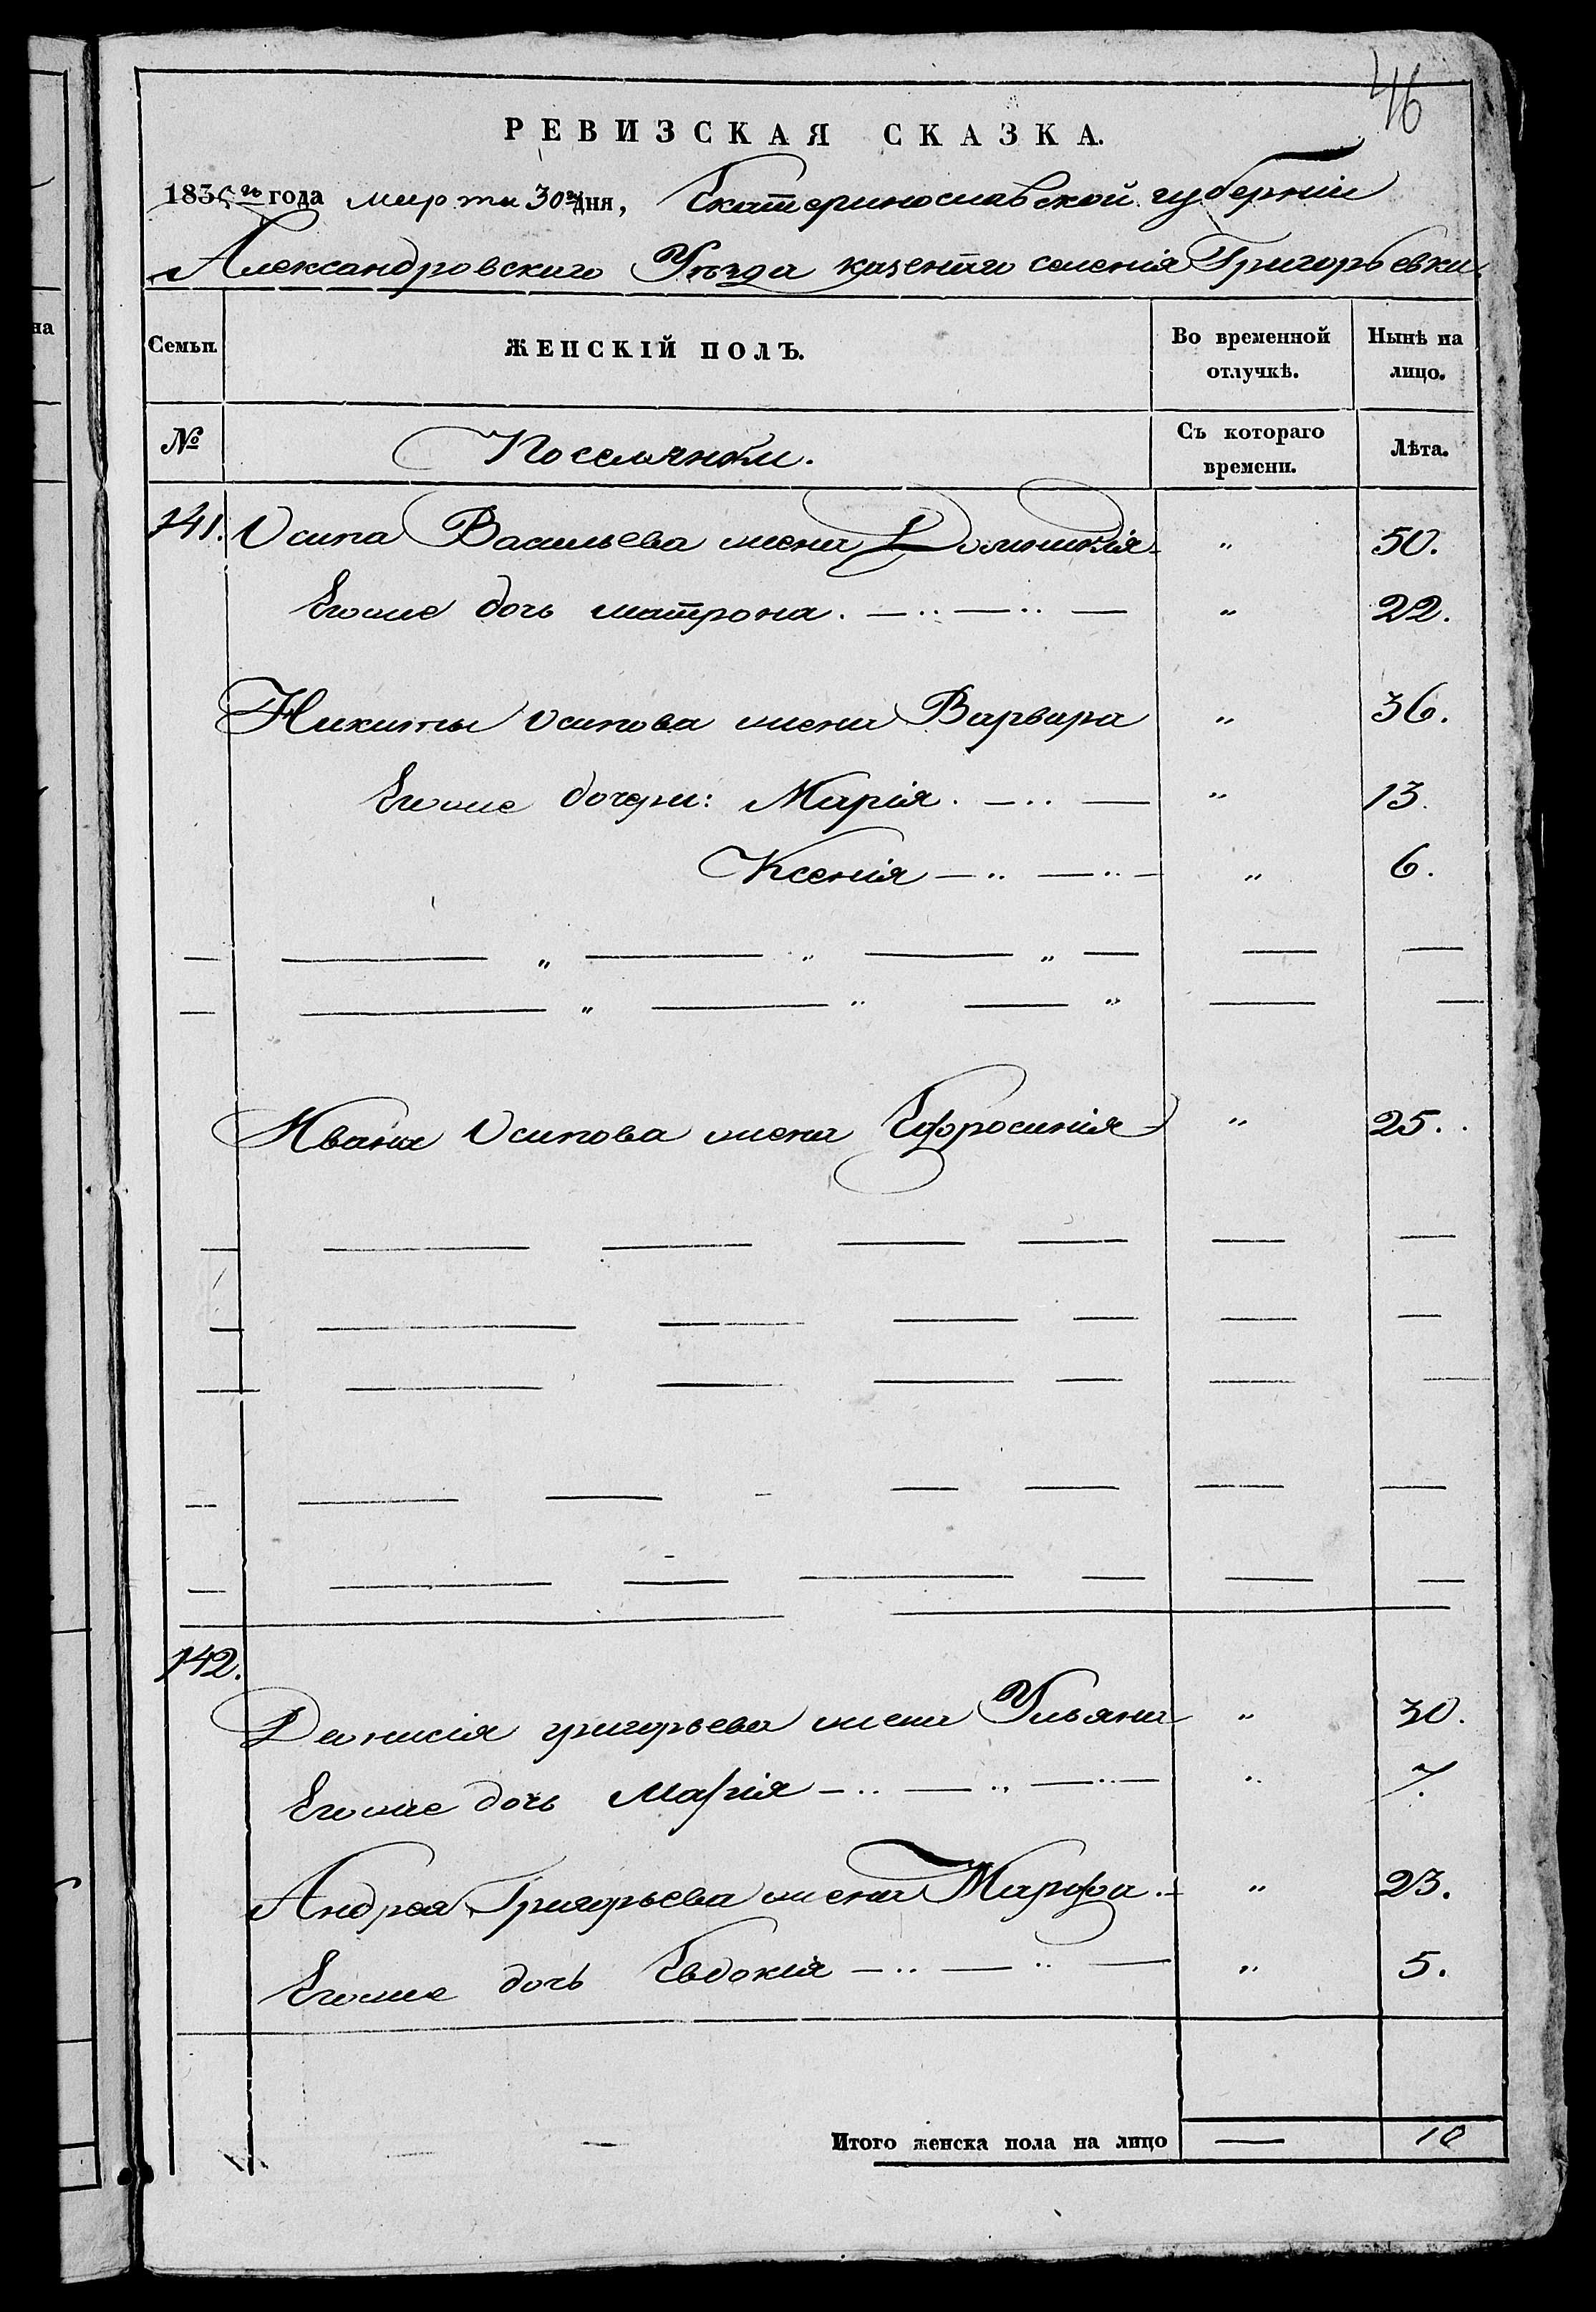 46
РЕВИЗСКАЯ СКАЗКА.
1835го года марта 30го дня, Екатеринославской губерніи
Александровскаго Уѣзда казеннаго селенія Григорьевки.
Семьи. ЖЕНСКІЙ ПОЛЪ. Во временной отлучкѣ. Нынѣ на лицо.
№ Поселянки. Съ котораго времени. Лѣта.
141. Осипа Васильева жена Домникія „ 50.
Егоже дочь матрона. „ 22.
Никиты Осипова жена Варвара „ 36.
Егоже дочери: Марія. „ 13.
Ксенія „ 6.
Ивана Осипова жена Ефросинія „ 25.
142.
Денисія григорьева жена Ульяна „ 30.
Егоже дочь Марія „ 7.
Андрея Григорьева жена Марфа. „ 23.
Егоже дочь Евдокія „ 5.
Итого женска пола на лицо — 10